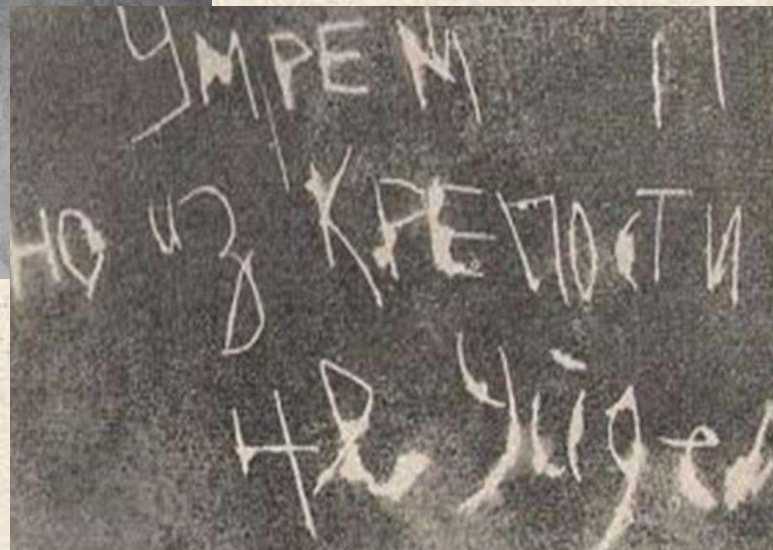 УМРЕМ
но из КРЕПОСТИ
не уйдем